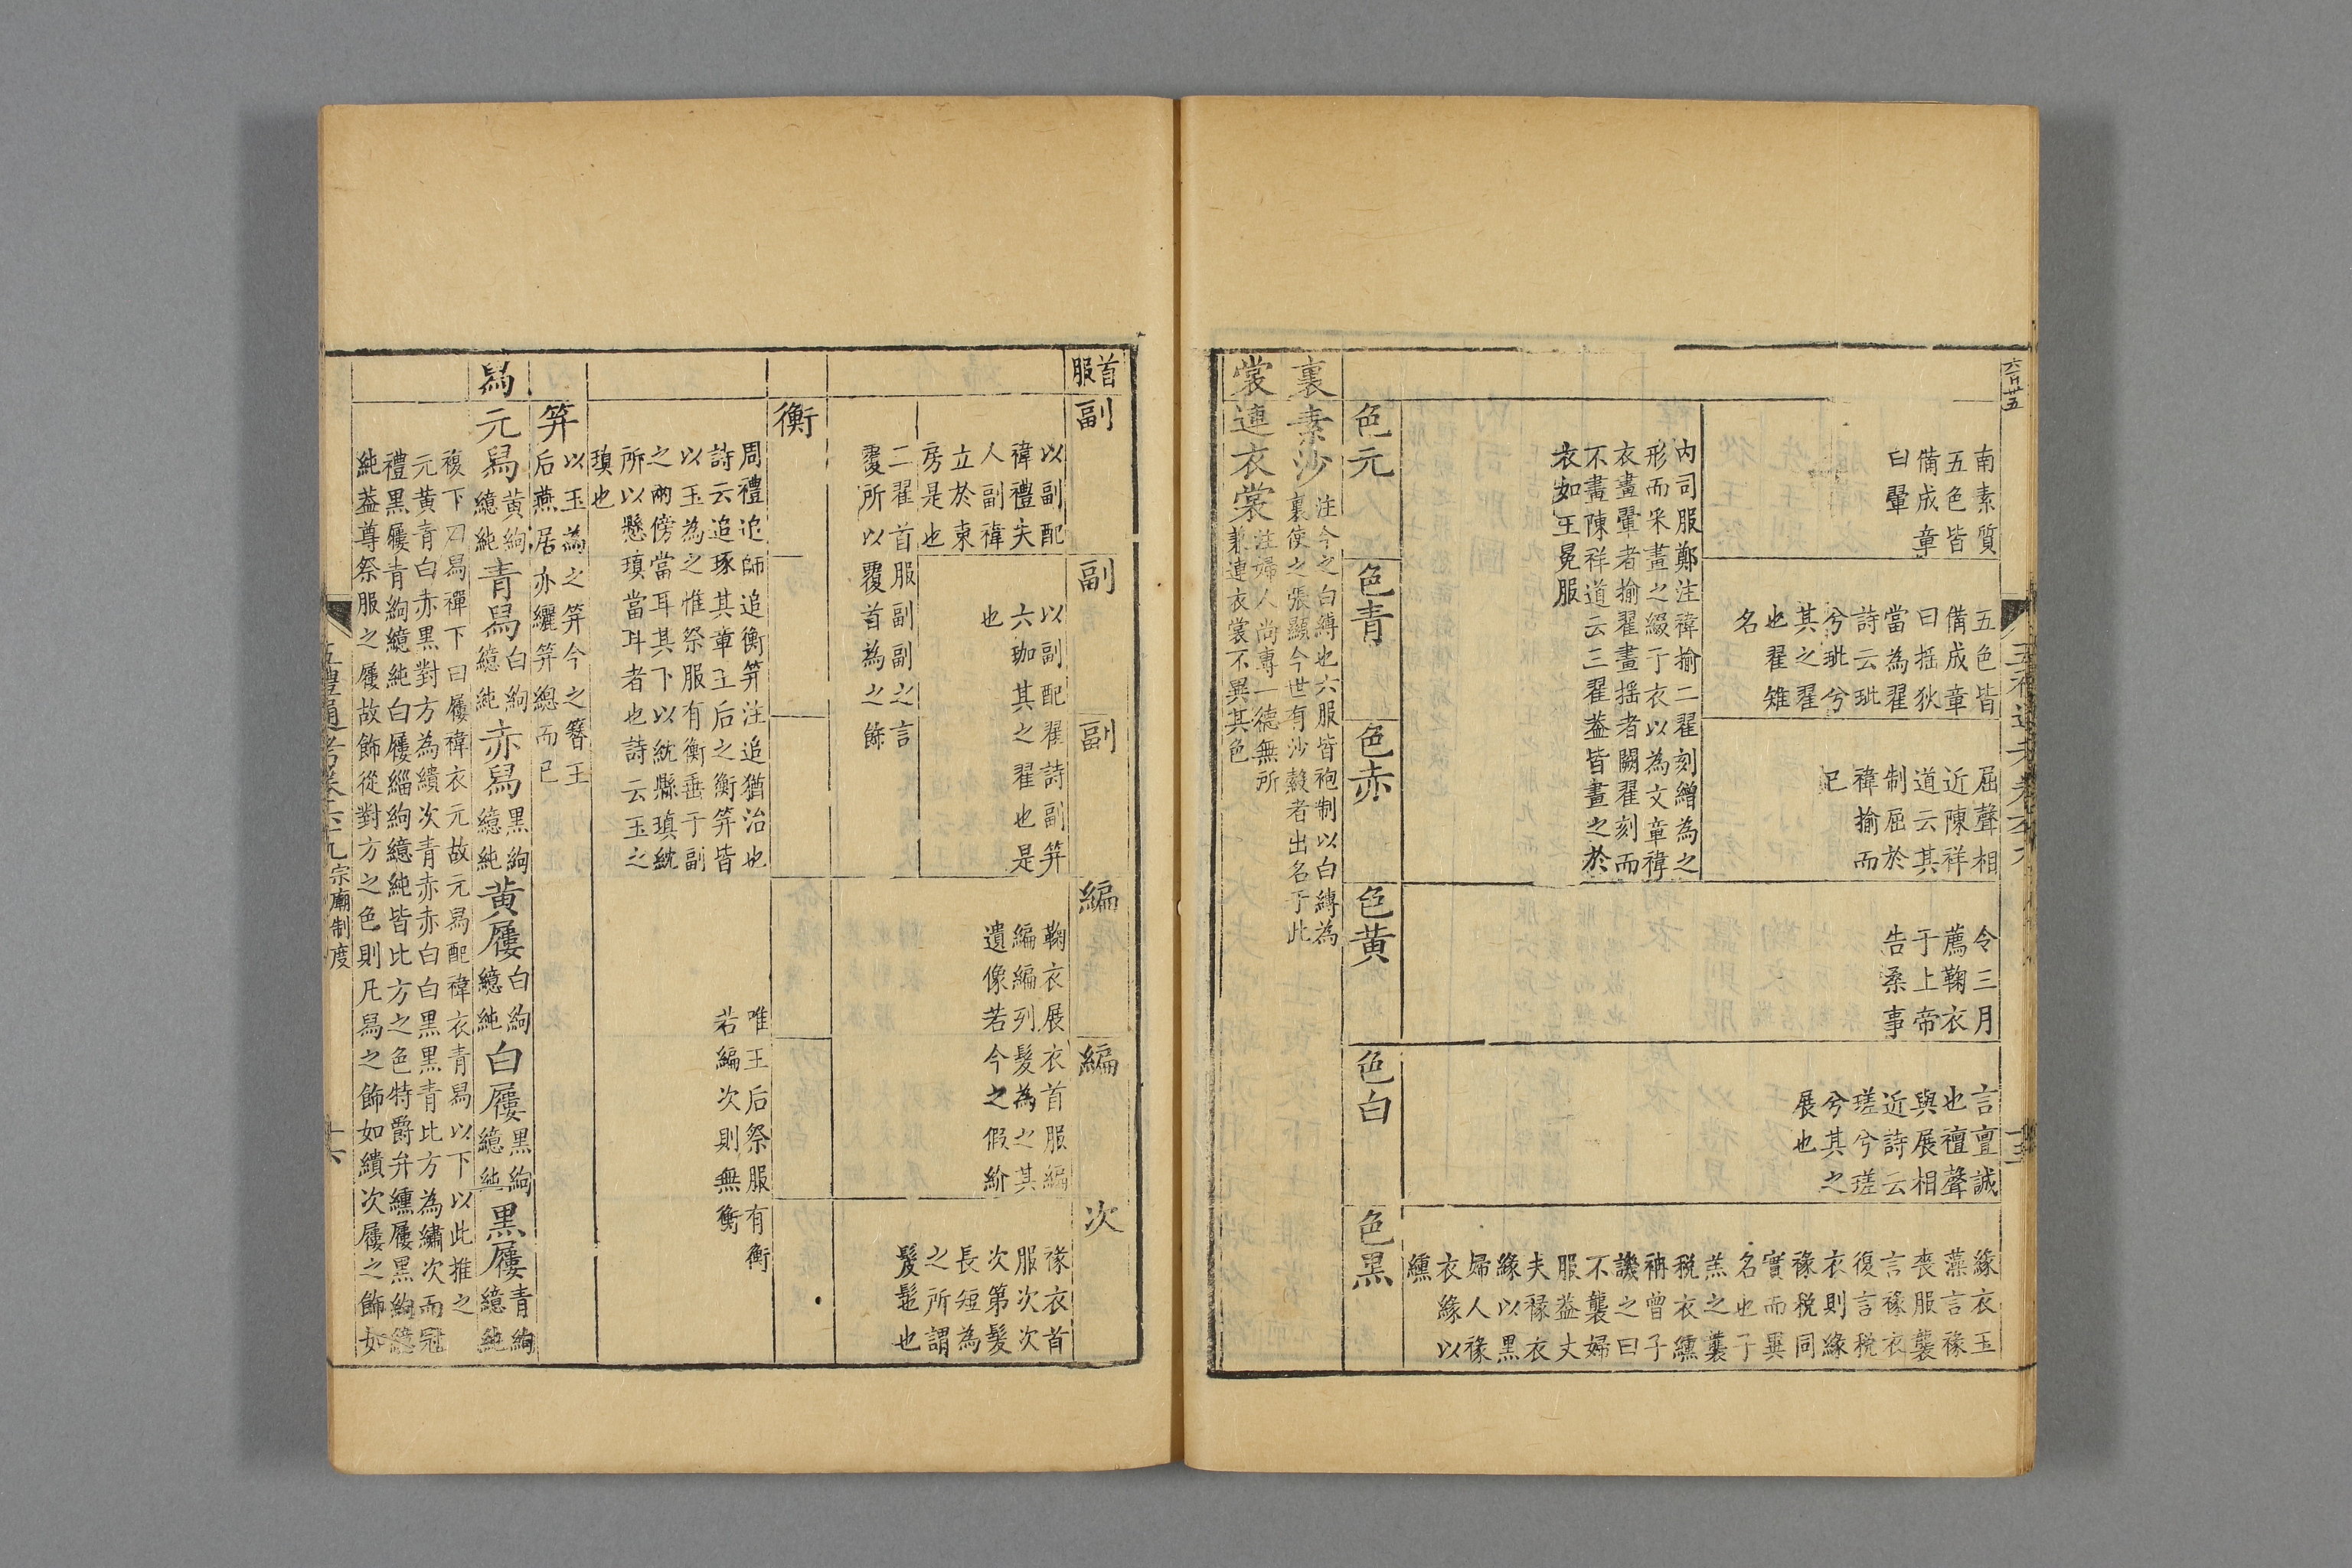 南素質
五色皆
備成章
曰翬
五色皆
備成章
曰揺狄
當為翟
詩云玼
兮玼兮
其之翟
也翟雉
名
屈聲相
近陳祥
道云其
制屈於
褘揄而
已
内司服鄭注褘揄二翟刻繒為之
形而采畫之綴于衣以為文章褘
衣畫翬者揄翟畫揺者闕翟刻而
不畫陳祥道云三翟葢皆畫之於
衣如王冕服
令三月
薦鞠衣
于上帝
告桑事
言亶誠
也襢聲
與展相
近詩云
瑳兮瑳
兮其之
展也
緣衣玉
藻言褖
喪服襲
言褖衣
復言税
衣則緣
褖税同
實而異
名也子
羔之襲
税衣纁
袡曾子
譏之曰
不襲婦
服葢丈
夫褖衣
緣以黒
婦人褖
衣緣以
纁
色元
色青
色赤
色黄
色白
色黒
裏素沙
注今之白縳也六服皆袍制以白縳為
裏使之張顯今世有沙縠者出名于此
裳連衣裳
注婦人尚專一德無所
兼連衣裳不異其色
首服
副
副
副
編
編
次
以副配
褘禮夫
人副褘
立於東
房是也
以副配翟詩副笄
六珈其之翟也是
也
二翟首服副副之言
覆所以覆首為之餙
鞠衣展衣首服編
編編列髮為之其
遺像若今之假紒
褖衣首
服次次
次第髮
長短為
之所謂
髲髢也
衡
周禮追師追衡笄注追猶治也
詩云追琢其章王后之衡笄皆
以玉為之惟祭服有衡垂于副
之兩傍當耳其下以紞縣瑱紞
所以懸瑱當耳者也詩云玉之
瑱也
唯王后祭服有衡
若編次則無衡
笄
以玉為之笄今之簪王
后燕居亦纚笄總而已
舄
元舄黄絇繶純青舄白絇繶純赤舄黒絇繶純黄屨白絇繶純白屨黒絇繶純黒屨青絇繶純
複下曰舄襌下曰屨褘衣元故元舄配褘衣青舄以下以此推之
元黄青白赤黒對方為繢次青赤赤白白黒黒青比方為繡次而冠
禮黒屨青絇繶純白屨緇絇繶純皆比方之色特爵弁纁屨黒絇繶
純葢尊祭服之屨故飾從對方之色則凡舄之飾如繢次屨之飾如
宗廟制度
十六